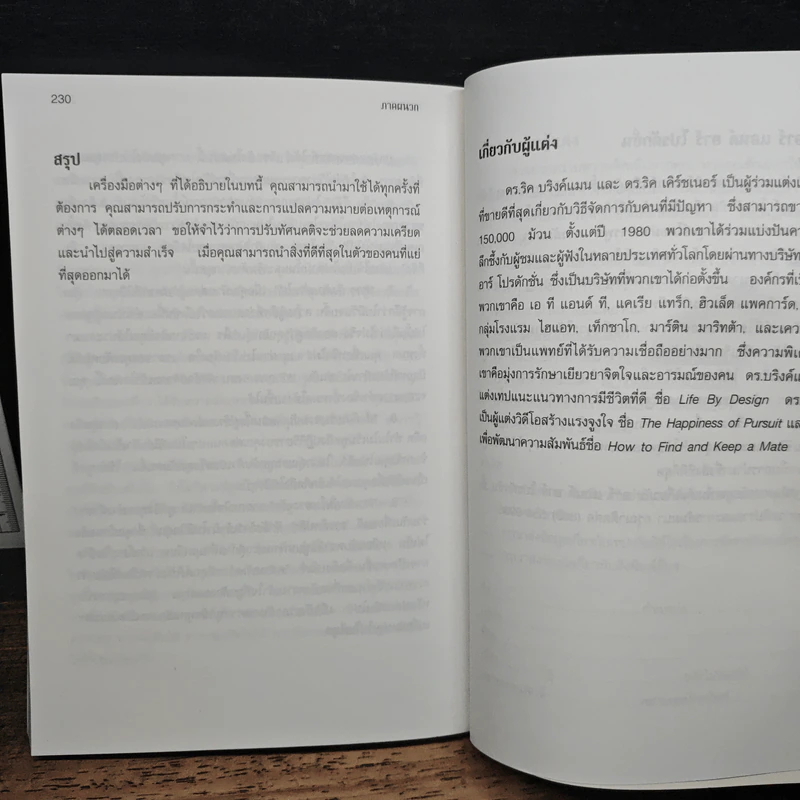 230
ภาคผนวก
สรุป
เครื่องมือต่างๆ ที่ได้อธิบายในบทนี้ คุณสามารถนำมาใช้ได้ทุกครั้งที่
ต้องการ คุณสามารถปรับการกระทำและการแปลความหมายต่อเหตุการณ์
ต่างๆ ได้ตลอดเวลา ขอให้จำไว้ว่าการปรับทัศนคติจะช่วยลดความเครียด
และนำไปสู่ความสำเร็จ เมื่อคุณสามารถนำสิ่งที่ดีที่สุดในตัวของคนที่แย่
ที่สุดออกมาได้
เกี่ยวกับผู้แต่ง
ดร.ริค บริงค์แมน และ ดร.ริค เคิร์ชเนอร์ เป็นผู้ร่วมแต่งเ
ที่ขายดีที่สุดเกี่ยวกับวิธีจัดการกับคนที่มีปัญหา ซึ่งสามารถขา
150,000 ม้วน ตั้งแต่ปี 1980 พวกเขาได้ร่วมแบ่งปันควา
ลึกซึ้งกับผู้ชมและผู้ฟังในหลายประเทศทั่วโลกโดยผ่านทางบริษัท
อาร์ โปรดักชั่น ซึ่งเป็นบริษัทที่พวกเขาได้ก่อตั้งขึ้น องค์กรที่เ
พวกเขาคือ เอ ที แอนด์ ที, แคเรีย แทร็ก, ฮิวเล็ต แพคการ์ด,
กลุ่มโรงแรม ไฮแอท, เท็กซาโก, มาร์ติน มาริทต้า, และเคว
พวกเขาเป็นแพทย์ที่ได้รับความเชื่อถืออย่างมาก ซึ่งความพิเศ
เขาคือมุ่งการรักษาเยียวยาจิตใจและอารมณ์ของคน ดร.บริงค์แ
แต่งเทปแนะแนวทางการมีชีวิตที่ดี ชื่อ Life By Design ดร
เป็นผู้แต่งวิดีโอสร้างแรงจูงใจ ชื่อ The Happiness of Pursuit แล
เพื่อพัฒนาความสัมพันธ์ชื่อ How to Find and Keep a Mate